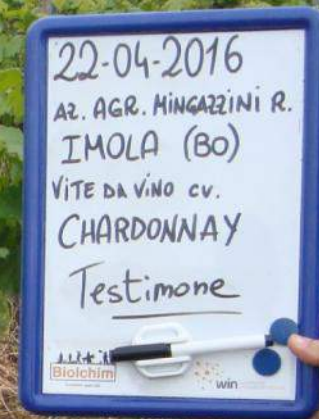 22-04-2016
AZ. AGR. MINGAZZINI R.
IMOLA (BO)
VITE DA VINO CV.
CHARDONNAY
Testimone
Biolchim
win